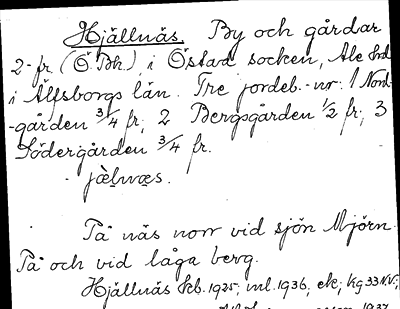 Hjällnäs. By och gårdar
2 fr. (Ö Bh) i Östad socken, Ale hrd
i Älfsborgs län. Tre jordeb.-nr: 1 Nord-
-gården 3/4 fr; 2 Bergsgården 1/2 fr; 3
Södergården 3/4 fr.
jæ̀lnæs.
På näs norr vid sjön Mjörn.
På och vid låga berg.
Hjällnäs Skb. 1925; inl. 1936, ek; kg 33 N.V;